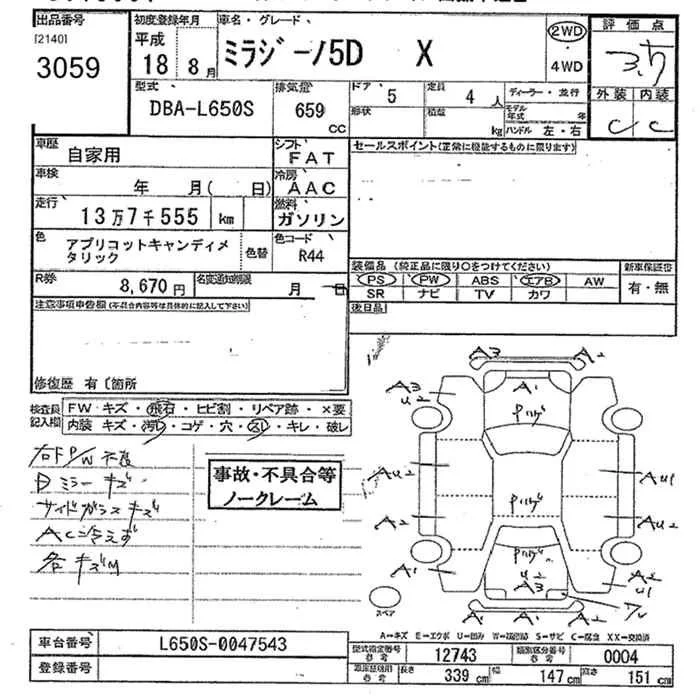 出品番号
[2140]
3059
初度登録年月
平成
18 8月
車名・グレード
ミラジーノ5D X
2WD
・
4WD
評価点
3.5
外装 内装
C C
型式
DBA-L650S
排気量
659
CC
ドア
5
定員
4 人
形状
積載
kg
ディーラー・並行
モデル年式 年
ハンドル 左・右
車歴
自家用
シフト
FAT
車検
年 月( 日)
冷房
AAC
走行
13万7千555 km
燃料
ガソリン
色
アプリコットキャンディメタリック
色替
色コード
R44
R券
8,670円
名変通知期限
月 日
セールスポイント(正常に機能するものに限ります)
装備品(純正品に限り○をつけてください)
PS PW ABS エアB AW
SR ナビ TV カワ
新車保証書
有・無
後日品
注意事項申告欄(不具合内容等は具体的に記入して下さい)
修復歴 有〔箇所
検査員記入欄
FW キズ・飛石・ヒビ割・リペア跡・×要
内装 キズ・汚レ・コゲ・穴・スレ・キレ・破レ
右ドP/W不良
Dミラーキズ
サイドガラスキズ
AC冷えず
各キズM
事故・不具合等
ノークレーム
A3 A2
A3
U2
A1
Pハゲ
AU2
AU1
Pハゲ
A2
AU2
Pハゲ
U2
A3
A1
A2
U1
A2 A1 A2
スペア
A―キズ E―エクボ U―凹み W―補修跡 S―サビ C―腐食 XX―交換済
車台番号
L650S-0047543
登録番号
型式指定番号
参考
12743
類別区分番号
参考
0004
参考
長さ
339 cm
幅
147 cm
高さ
151 cm